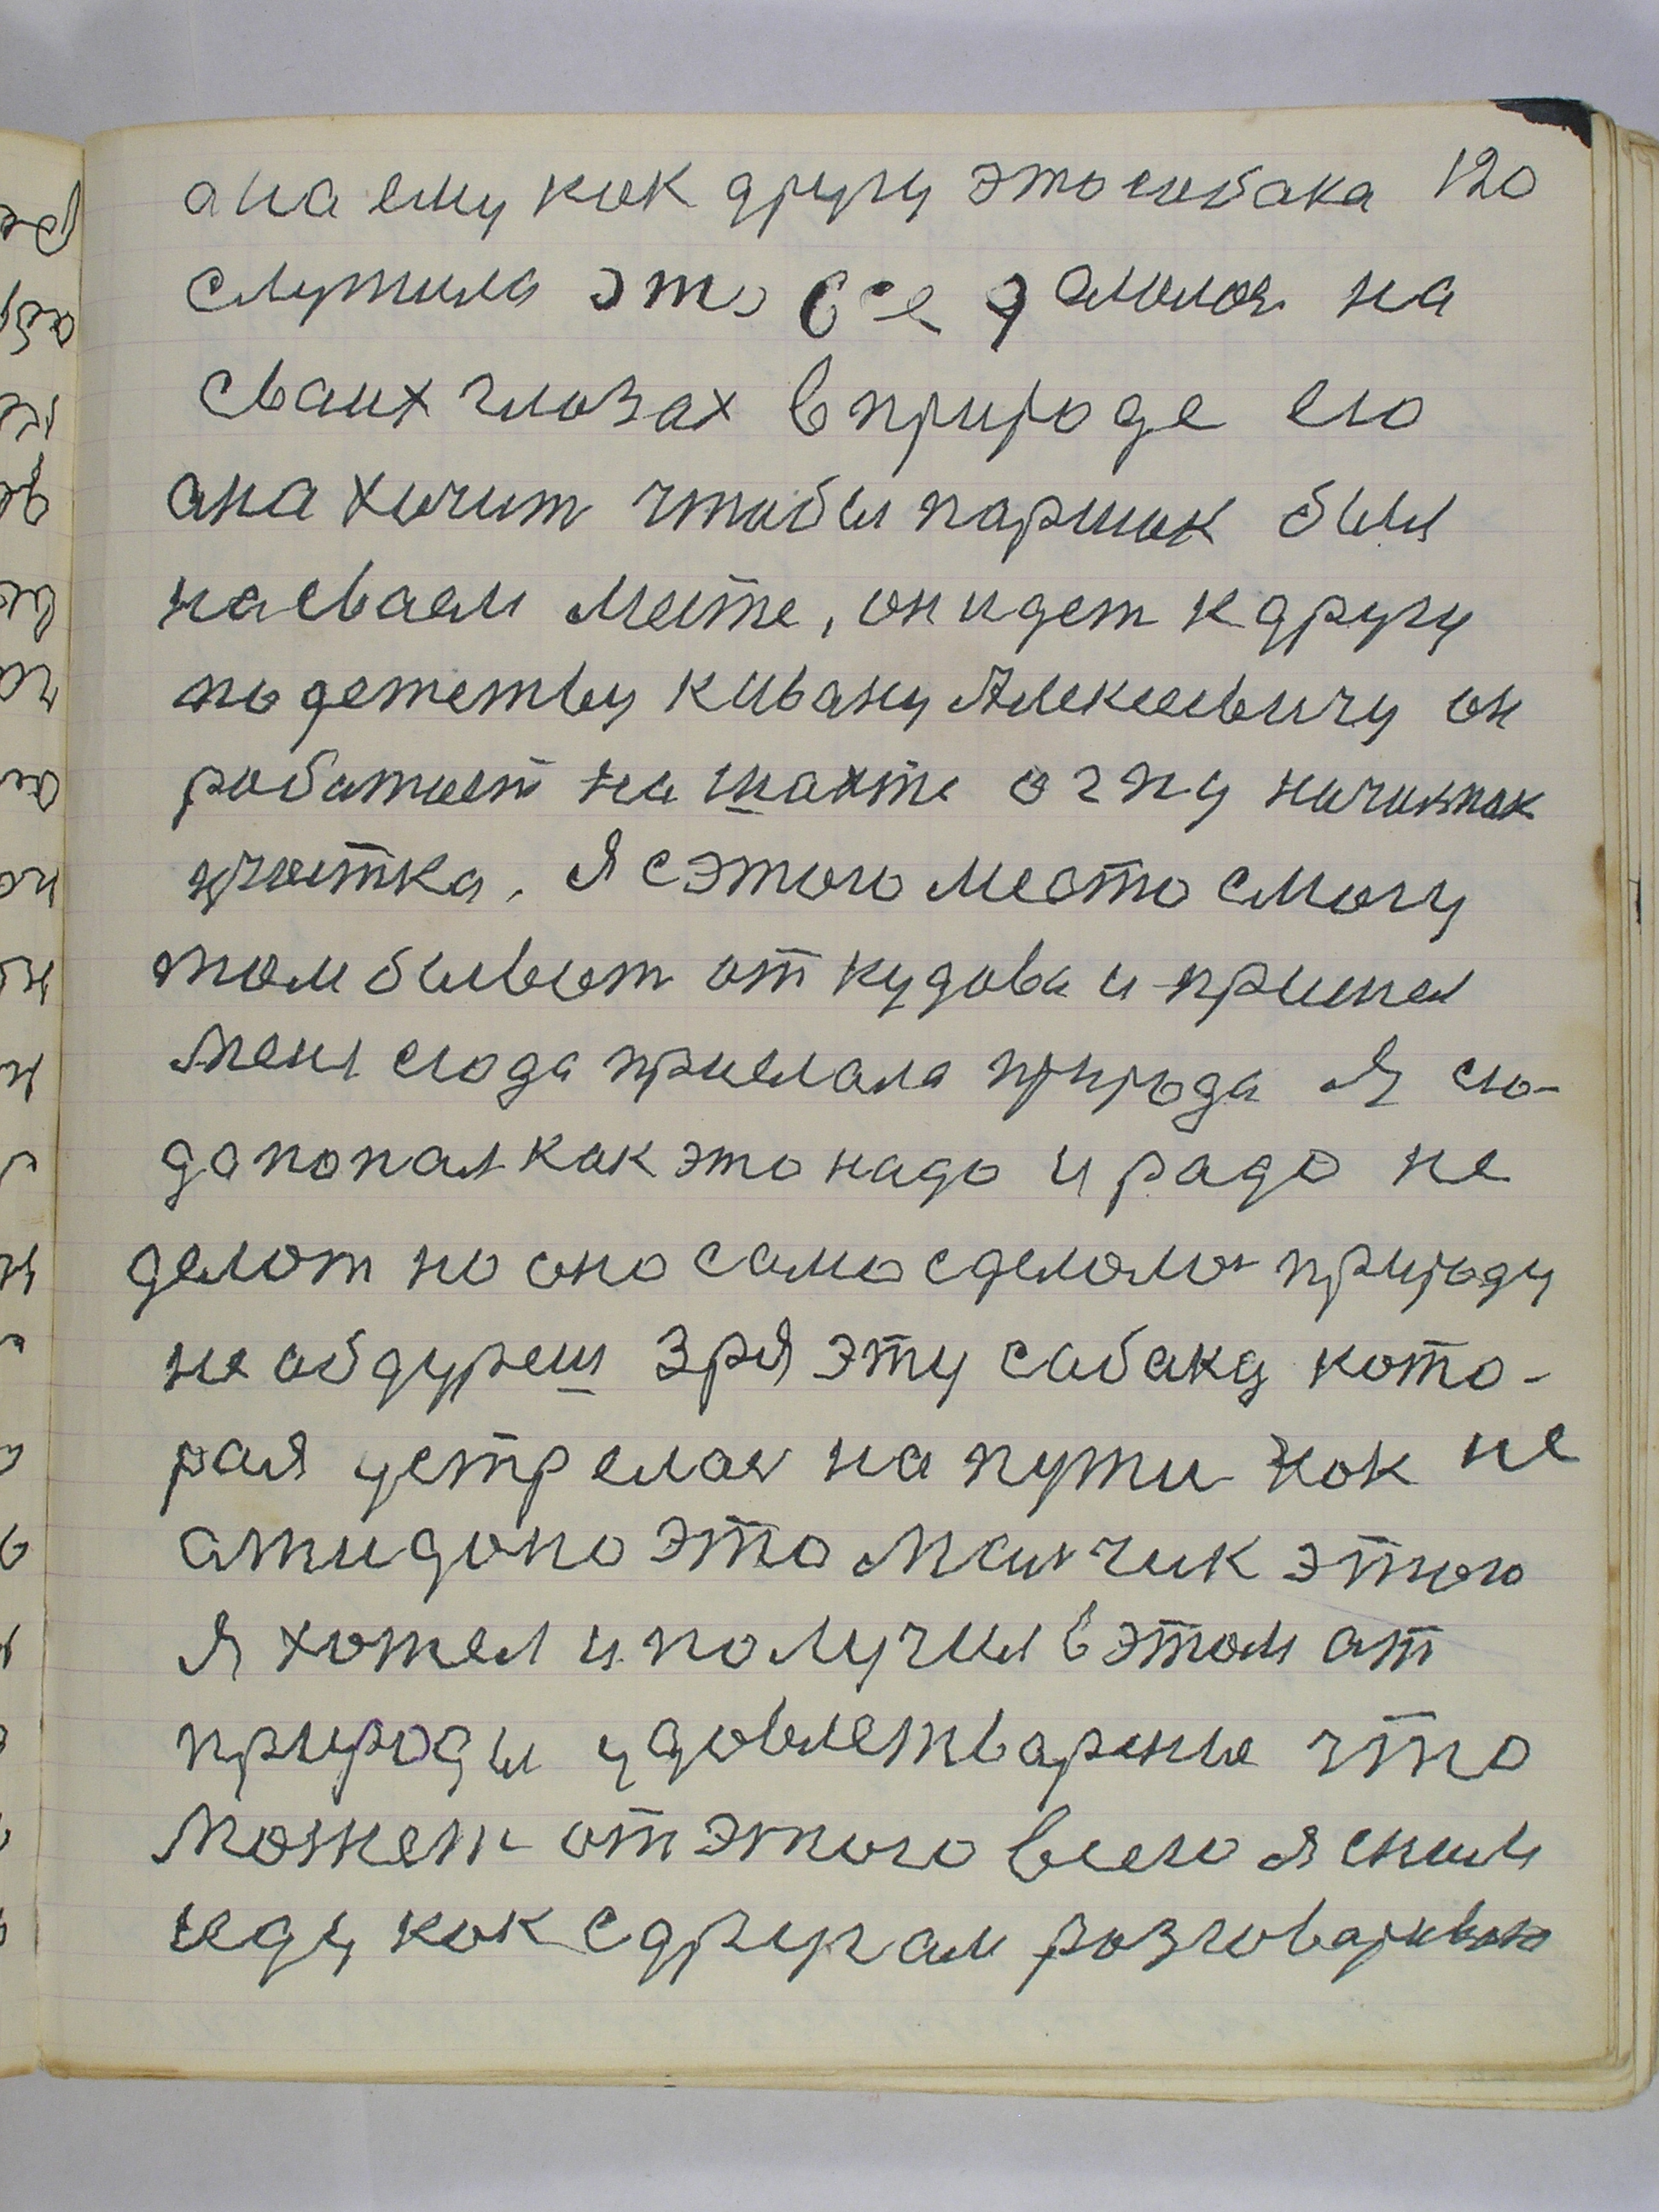 ана ему как другу это собака 120
слутила это все далалоя на
сваих глазах в природе его
ана хочит чтобы паршок был
на сваем месте, он идет к другу
по детству к Ивану Алексеевичу он
работает на шахте огпу начикнак
участка. Я с этого места смогу
там бывает от кудова и пришел
меня сюда прислала природа Я сю-
да попал как это надо и рада не
делат но оно само сделало природу
не абдуреш зря эту сабаку кото-
рая устрелас на пути нок не
атидоно это малчик этого
Я хотел и получил в этом ат
природы удовлетварение что
может от этого всего я с ним
иеду как с другам разговариваю